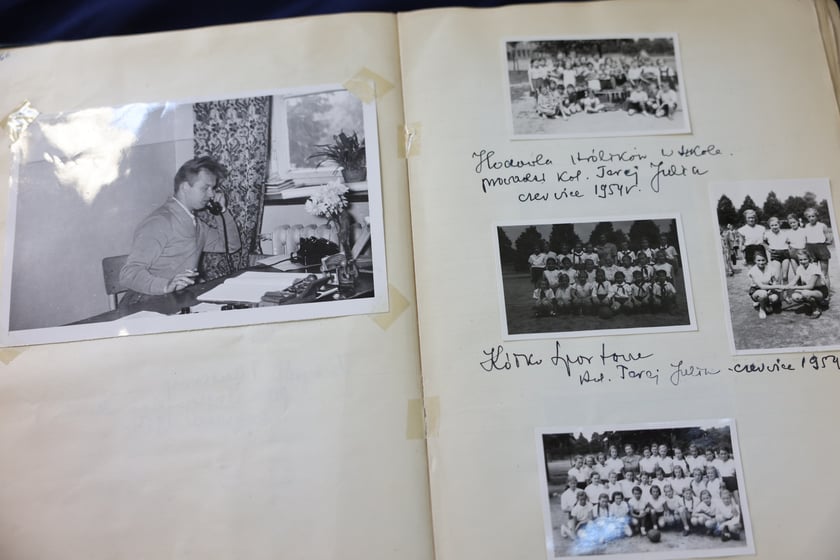 Hodowla królików w szkole.
prowadzi kol. Jarej Julia
czerwiec 1954 r.
Kółko Sportowe
kol. Jarej Julia - czerwiec 1954